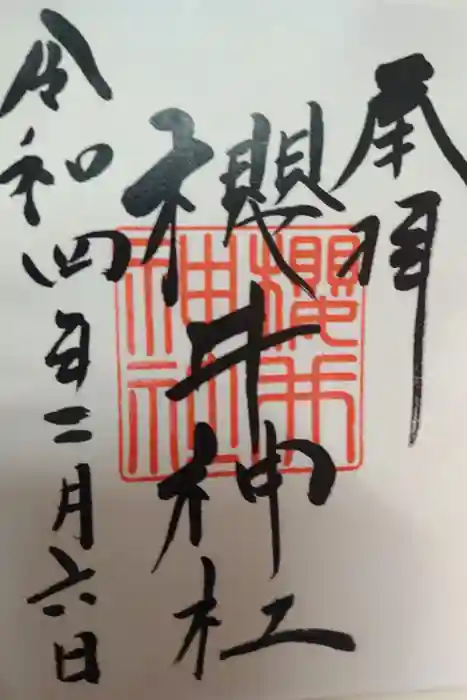 奉拝
櫻井神社
櫻井神社
令和四年二月六日